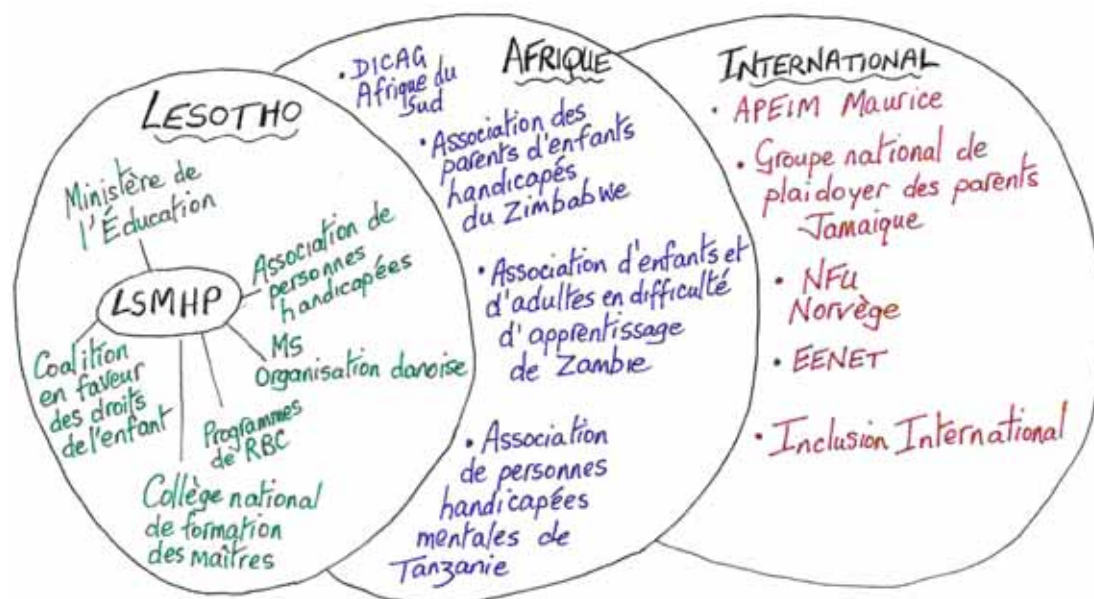 LESOTHO
Ministère de
l'Éducation
LSMHP
Association de
personnes
handicapées
MS
Organisation danoise
Programmes
de RBC
Collège national
de formation
des maîtres
Coalition
en faveur
des droits
de l'enfant
AFRIQUE
• DICAG
Afrique du
Sud
• Association des
parents d'enfants
handicapés
du Zimbabwe
• Association d'enfants et
d'adultes en difficulté
d'apprentissage
de Zambie
• Association
de personnes
handicapées
mentales de
Tanzanie
INTERNATIONAL
• APEIM Maurice
• Groupe national de
plaidoyer des parents
Jamaique
• NFU
Norvège
• EENET
• Inclusion International